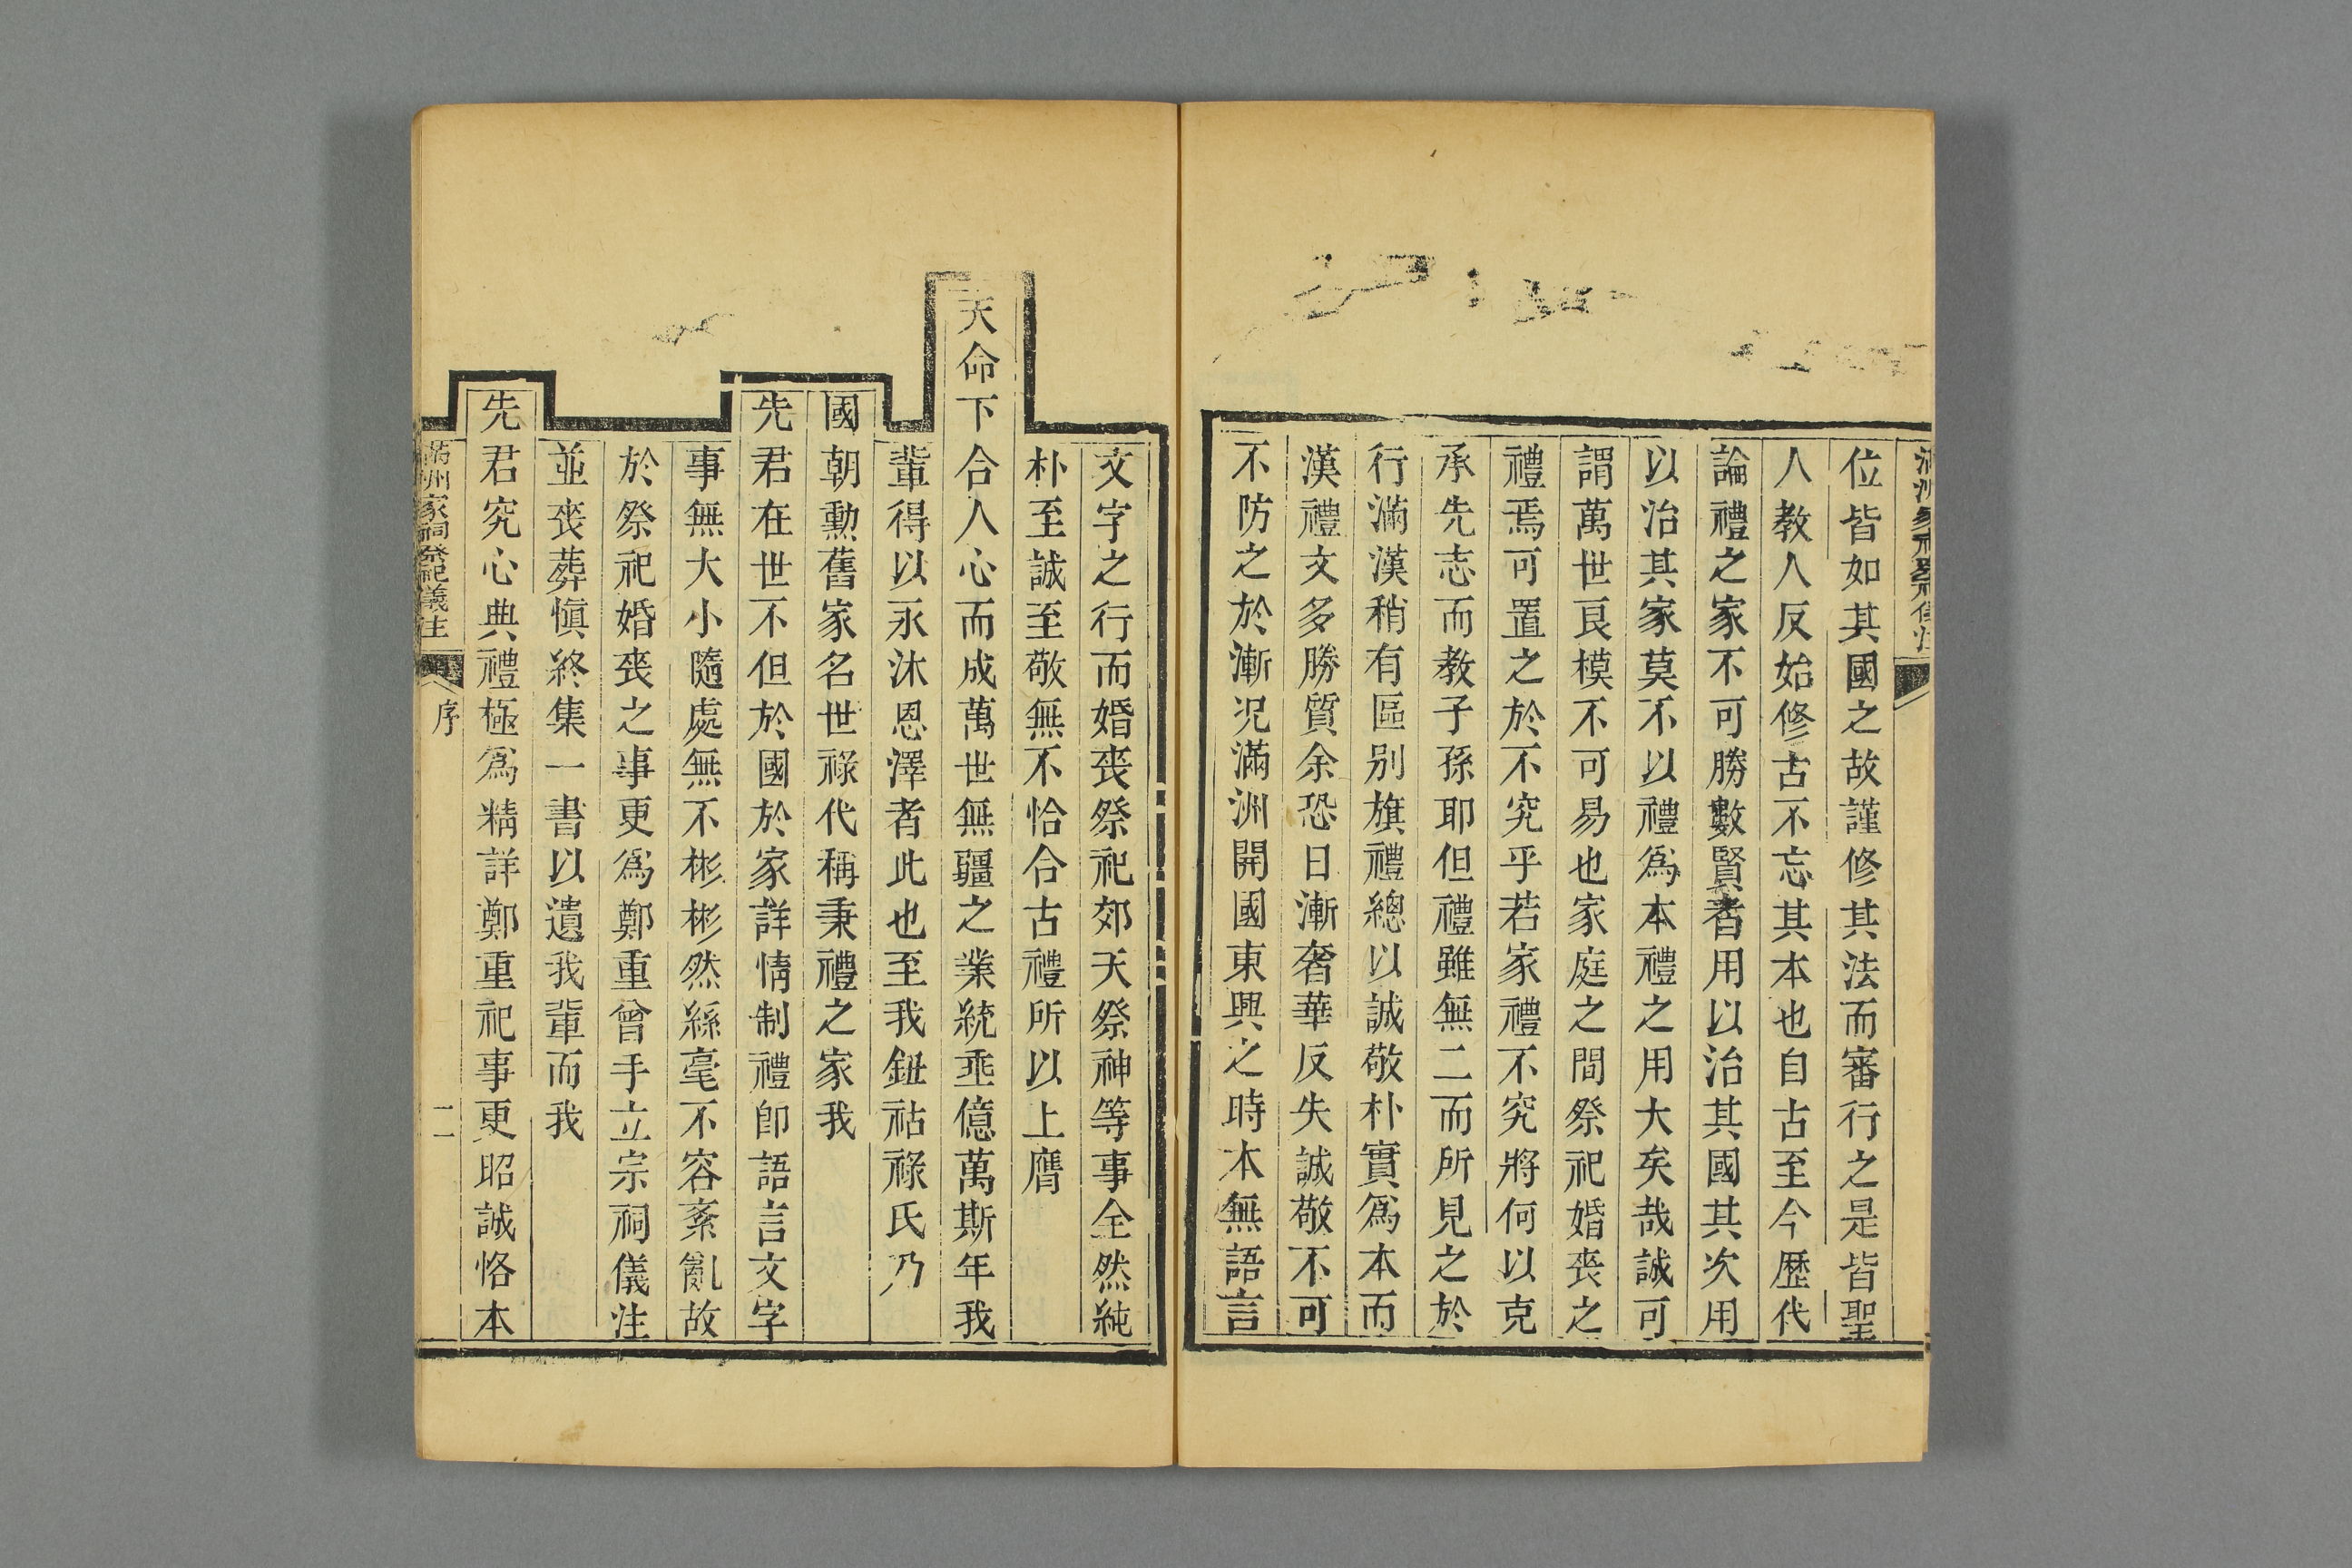 位皆如其國之故謹修其法而審行之是皆聖
人教人反始修古不忘其本也自古至今歷代
論禮之家不可勝數賢者用以治其國其次用
以治其家莫不以禮爲本禮之用大矣哉誠可
謂萬世良模不可易也家庭之間祭祀婚喪之
禮焉可置之於不究乎若家禮不究將何以克
承先志而教子孫耶但禮雖無二而所見之於
行滿漢稍有區别旗禮總以誠敬朴實爲本而
漢禮文多勝質余恐日漸奢華反失誠敬不可
不防之於漸況滿洲開國東興之時本無語言
文字之行而婚喪祭祀郊天祭神等事全然純
朴至誠至敬無不恰合古禮所以上膺
天命下合人心而成萬世無疆之業統垂億萬斯年我
輩得以永沐恩澤者此也至我鈕祜祿氏乃
國朝勳舊家名世祿代稱秉禮之家我
先君在世不但於國於家詳情制禮卽語言文字
事無大小隨處無不彬彬然絲毫不容紊亂故
於祭祀婚喪之事更爲鄭重曾手立宗祠儀注
並喪葬愼終集一書以遺我輩而我
先君究心典禮極爲精詳鄭重祀事更昭誠恪本
滿洲家祠祭祀儀注
序
二